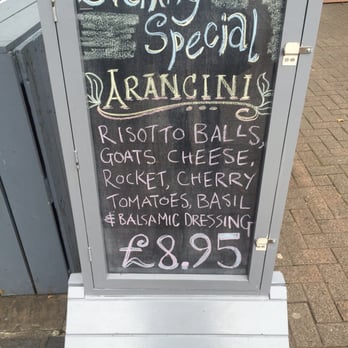 Special
ARANCINI
RISOTTO BALLS,
GOATS CHEESE,
ROCKET, CHERRY
TOMATOES, BASIL
& BALSAMIC DRESSING
£8.95